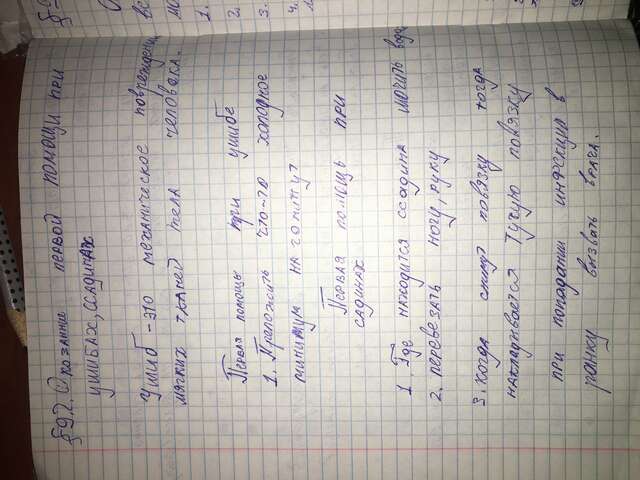 §92. Оказание первой помощи при
ушибах, ссадинах
Ушиб - это механическое повреждени
мягких тканей тела человека.
Первая помощь при ушибе
1. Преложить что-то холодное
минимум на 20 минут
Первая помощь при
садинах
1. Где находится ссадина мочить вода
2. перевезать ногу, руку
3. когда снимут повязку тогда
накладывается тугую повязку
при попадании инфекции в
ранку вызвать врача.